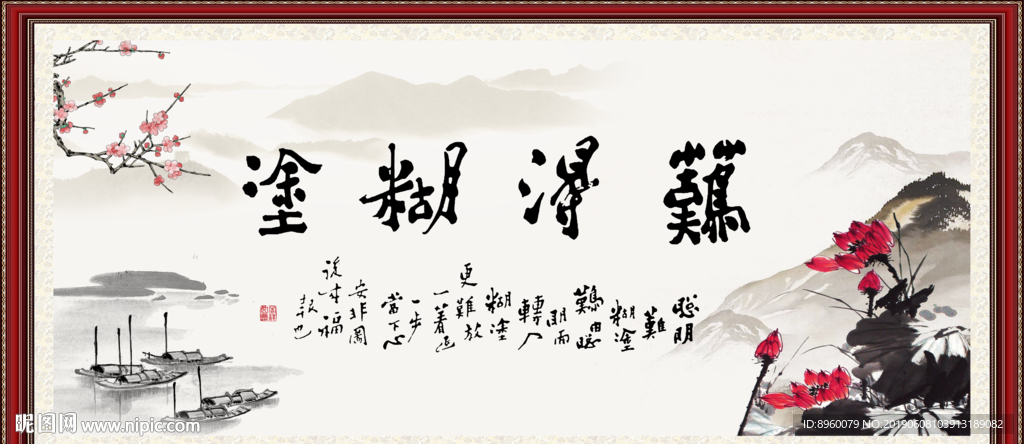 難得糊塗
聰明
難
糊塗
難由聰
明而
轉入
糊塗
更難放
一著退
一步
當下心
安非圖
後來福
報也
昵图网 www.nipic.com
ID:8960079 NO.20190608103913189082